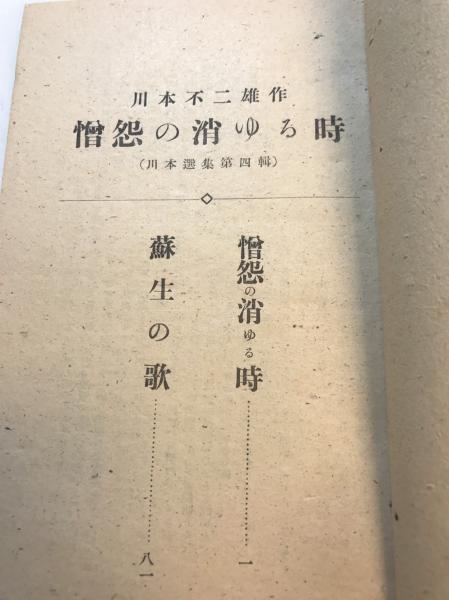 川本不二雄作
憎怨の消ゆる時
（川本選集第四輯）
憎怨の消ゆる時……………………一
蘇生の歌……………………八一